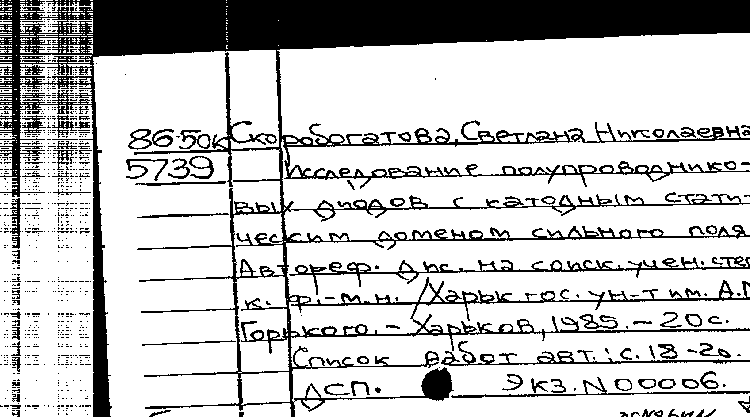 86-50к Скоробогатова, Светлана Николаевна
5739 Исследование полупроводнико-
вых диодов с катодным стати-
ческим доменом сильного поля
Автореф. дис. на соиск. учен. степ
к. ф.-м.н. /Харьк гос. ун-т им. А.М
Горького. - Харьков, 1985. - 20 с.
Список работ авт.: с. 18-20.
ДСП. Экз. N 00006.